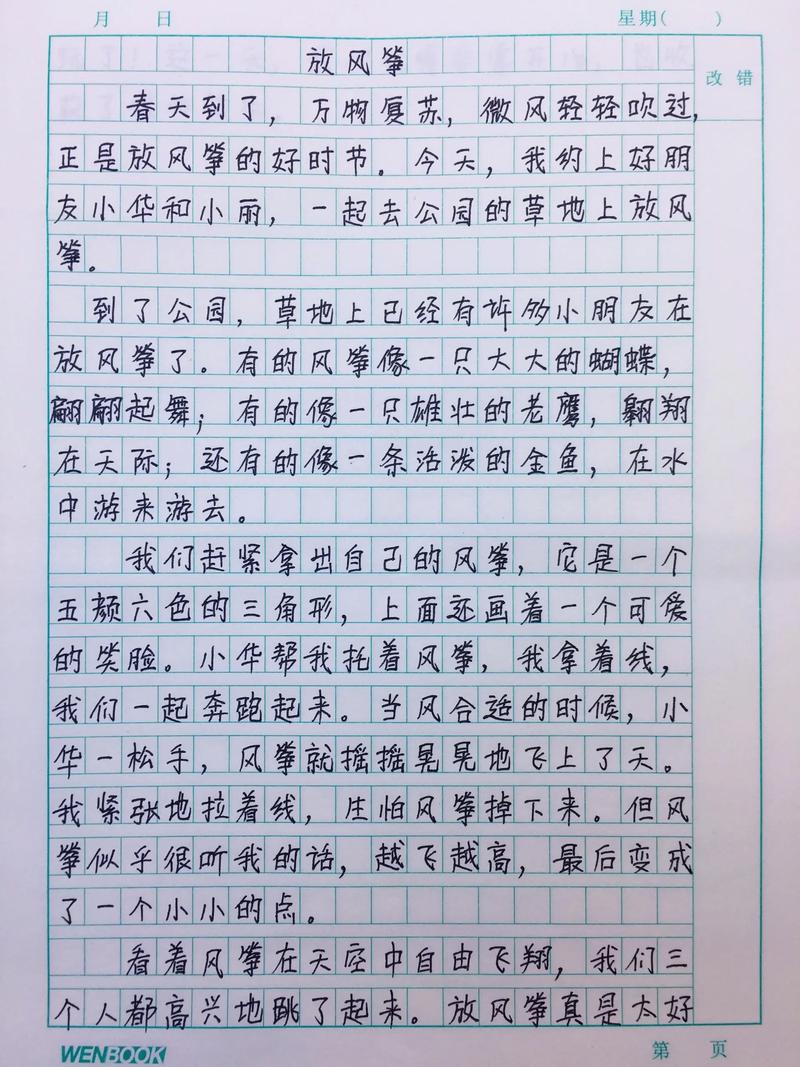 月 日 星期( )
放风筝
改错
春天到了，万物复苏，微风轻轻吹过，
正是放风筝的好时节。今天，我约上好朋
友小华和小丽，一起去公园的草地上放风
筝。
到了公园，草地上已经有许多小朋友在
放风筝了。有的风筝像一只大大的蝴蝶，
翩翩起舞；有的像一只雄壮的老鹰，翱翔
在天际；还有的像一条活泼的金鱼，在水
中游来游去。
我们赶紧拿出自己的风筝，它是一个
五颜六色的三角形，上面还画着一个可爱
的笑脸。小华帮我托着风筝，我拿着线，
我们一起奔跑起来。当风合适的时候，小
华一松手，风筝就摇摇晃晃地飞上了天。
我紧张地拉着线，生怕风筝掉下来。但风
筝似乎很听我的话，越飞越高，最后变成
了一个小小的点。
看着风筝在天空中自由飞翔，我们三
个人都高兴地跳了起来。放风筝真是太好
WENBOOK 第 页